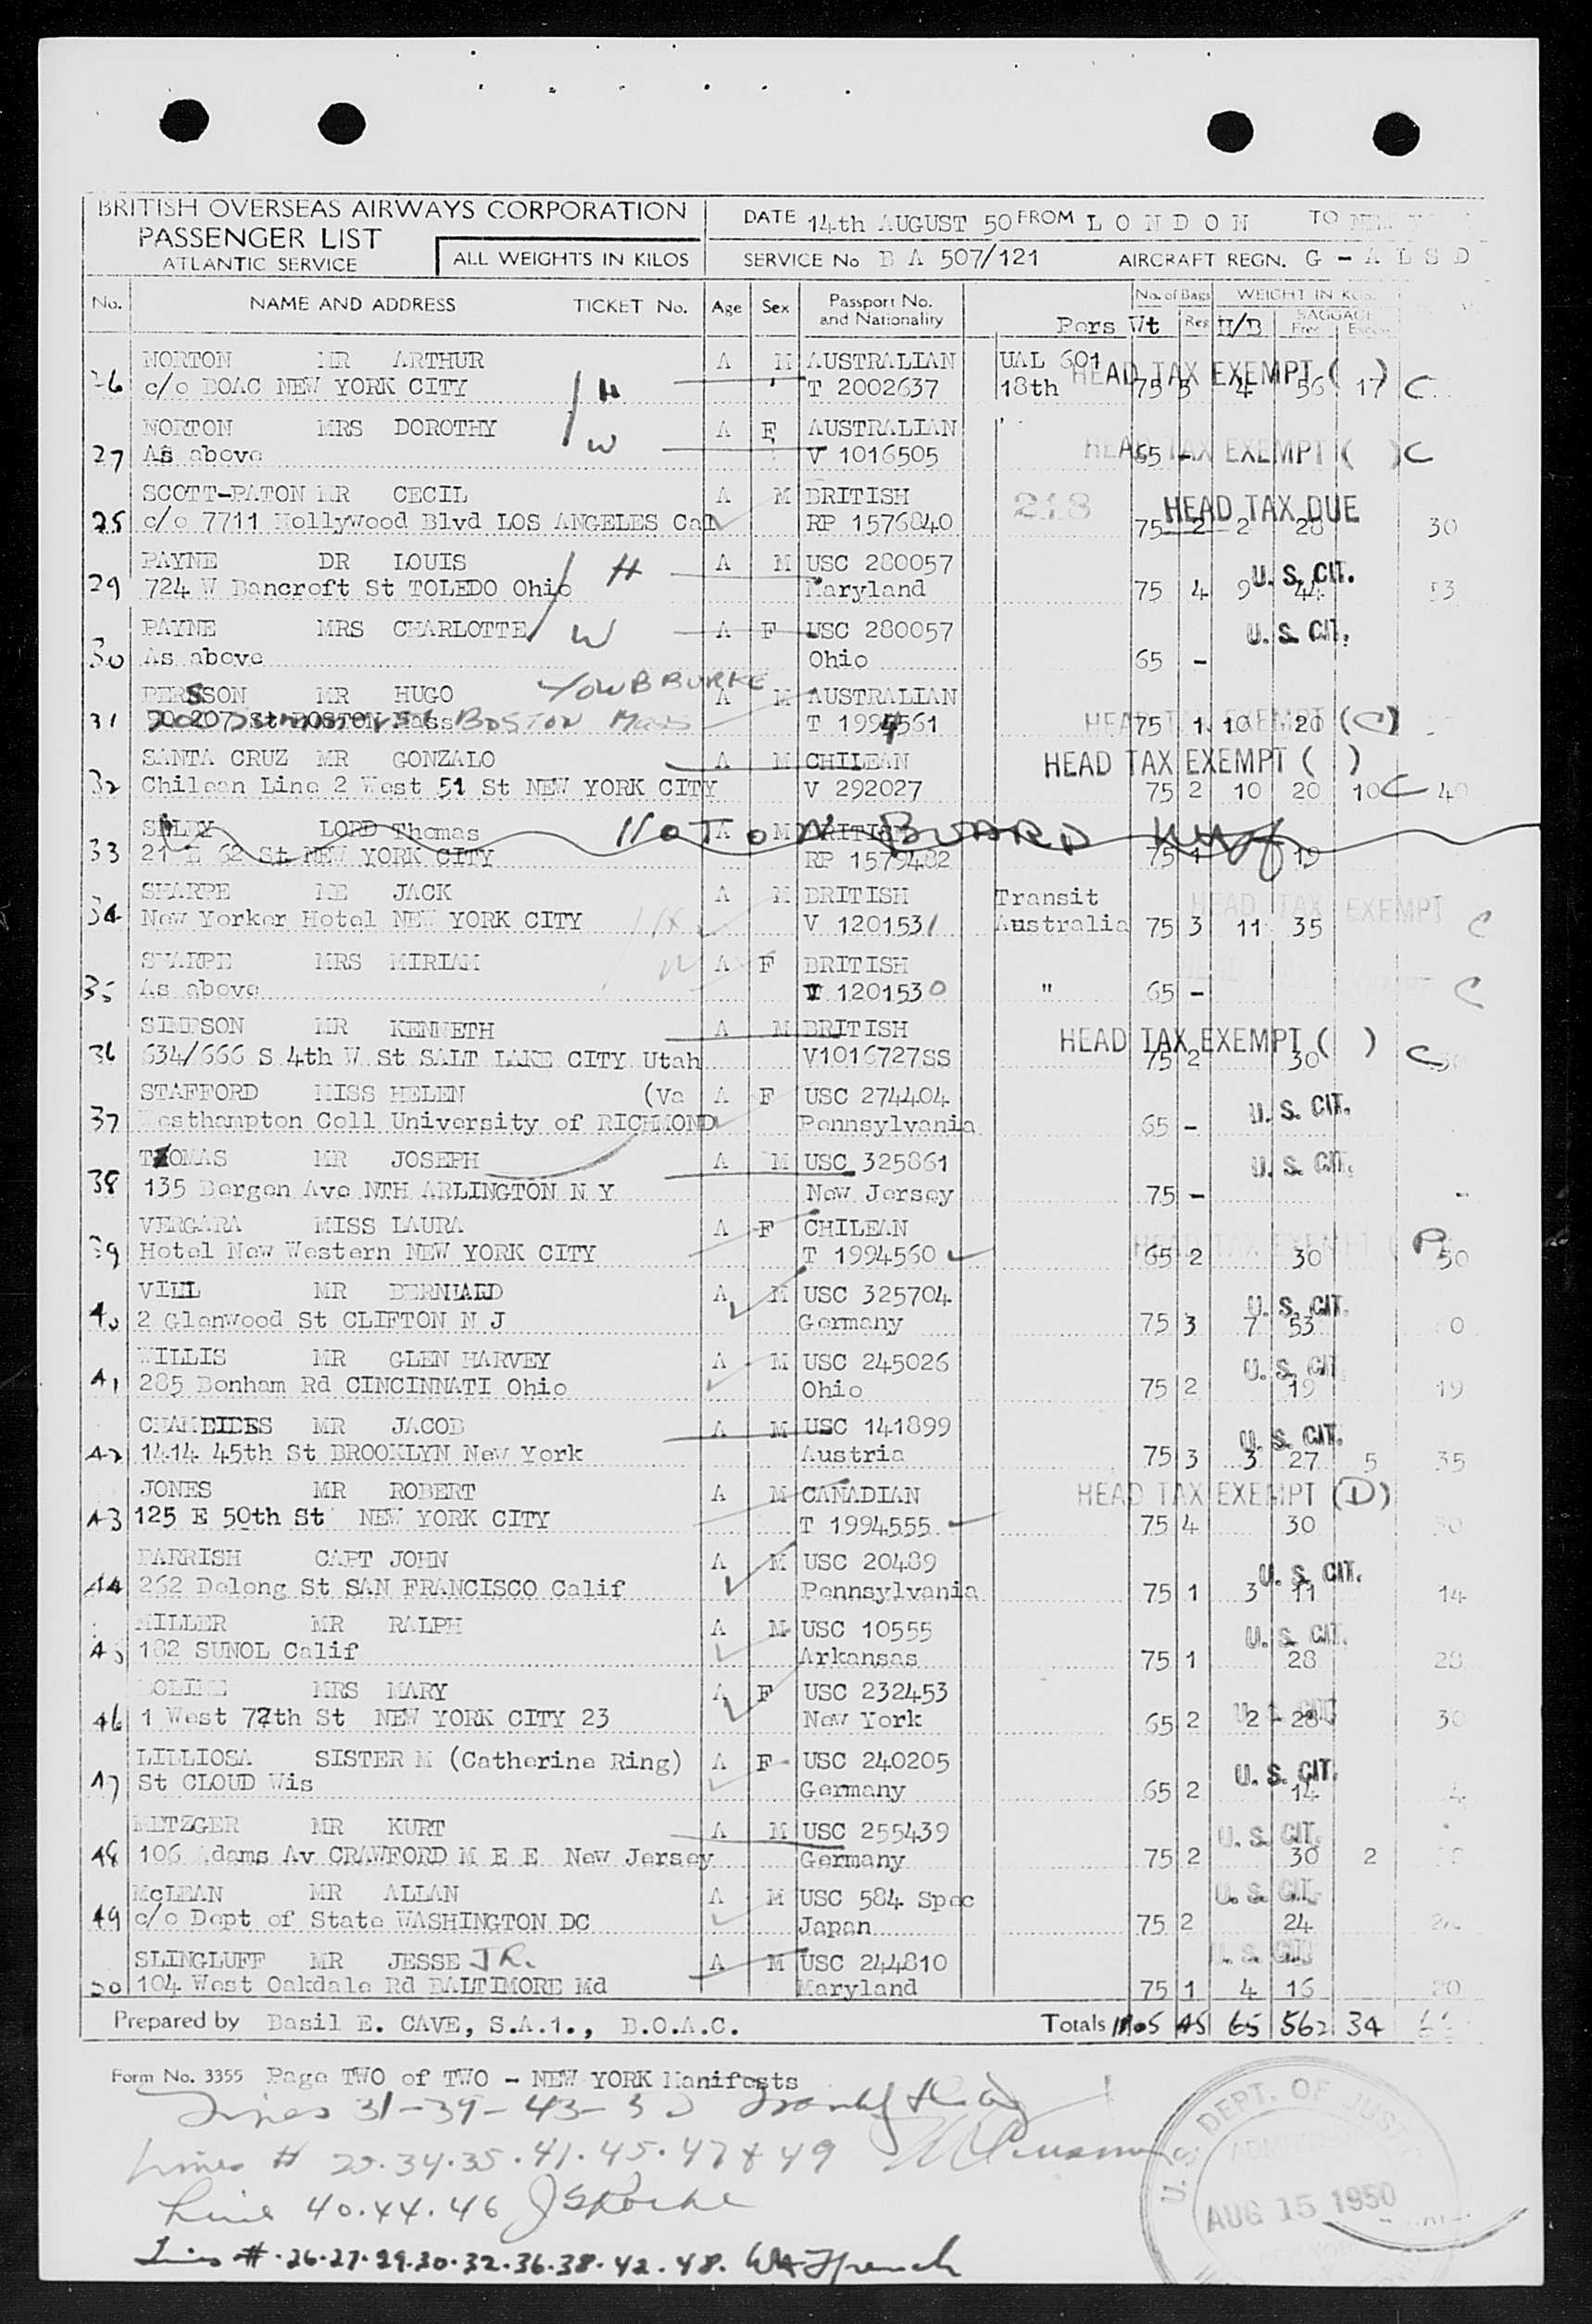 BRITISH OVERSEAS AIRWAYS CORPORATION
PASSENGER LIST
ATLANTIC SERVICE
ALL WEIGHTS IN KILOS
DATE 14th AUGUST 50 FROM L O N D O N TO
SERVICE No B A 507/121 AIRCRAFT REGN. G - A L S D
No. NAME AND ADDRESS TICKET No. Age Sex Passport No. and Nationality Pers Wt No. of Bags Reg H/B WEIGHT IN KGS. BAGGAGE Free Excess
NORTON MR ARTHUR A M AUSTRALIAN UAL 601 HEAD TAX EXEMPT ( )
26 c/o BOAC NEW YORK CITY H T 2002637 18th 75 5 4 56 17 C
NORTON MRS DOROTHY A F AUSTRALIAN HEAD TAX EXEMPT ( ) C
27 As above W V 1016505 65 -
SCOTT-PATON MR CECIL A M BRITISH 218 HEAD TAX DUE
c/o 7711 Hollywood Blvd LOS ANGELES Cal RP 1576840 75 2 2 28 30
PAYNE DR LOUIS A M USC 280057 U. S. CIT.
29 724 W Bancroft St TOLEDO Ohio H Maryland 75 4 9 44 53
PAYNE MRS CHARLOTTE W A F USC 280057 U. S. CIT.
30 As above Ohio 65 -
PERSSON MR HUGO A M AUSTRALIAN
31 BOSTON Mass T 1994561 HEAD TAX EXEMPT (C) 75 1 10 20
SANTA CRUZ MR GONZALO A M CHILEAN HEAD TAX EXEMPT ( )
32 Chilean Line 2 West 51 St NEW YORK CITY V 292027 75 2 10 20 10 C 40
LORD Thomas NOT ON BOARD A M BRITISH
33 21 E 62 St NEW YORK CITY RP 1579482 75 1 19
SHARPE ME JACK A M BRITISH Transit HEAD TAX EXEMPT
34 New Yorker Hotel NEW YORK CITY V 1201531 Australia 75 3 11 35 C
SHARPE MRS MIRIAM W A F BRITISH
35 As above V 1201530 " 65 - C
SIMPSON MR KENNETH A M BRITISH HEAD TAX EXEMPT ( )
36 634/666 S 4th W St SALT LAKE CITY Utah V1016727SS 75 2 30 C
STAFFORD MISS HELEN (Va A F USC 274404 U. S. CIT.
37 Westhampton Coll University of RICHMOND Pennsylvania 65 -
THOMAS MR JOSEPH A M USC 325861 U. S. CIT.
38 135 Bergen Ave NTH ARLINGTON N Y New Jersey 75 -
VERGARA MISS LAURA A F CHILEAN
39 Hotel New Western NEW YORK CITY T 1994560 HEAD TAX EXEMPT 65 2 30
VILL MR BERNHARD A M USC 325704 U. S. CIT.
40 2 Glenwood St CLIFTON N J Germany 75 3 7 53
WILLIS MR GLEN HARVEY A M USC 245026 U. S. CIT
41 285 Bonham Rd CINCINNATI Ohio Ohio 75 2 19 19
CHAMEIDES MR JACOB A M USC 141899 U. S. CIT.
42 1414 45th St BROOKLYN New York Austria 75 3 3 27 5 35
JONES MR ROBERT A M CANADIAN HEAD TAX EXEMPT (D)
43 125 E 50th St NEW YORK CITY T 1994555 75 4 30 30
PARRISH CAPT JOHN A M USC 20489 U. S. CIT.
44 262 Delong St SAN FRANCISCO Calif Pennsylvania 75 1 3 11 14
MILLER MR RALPH A M USC 10555 U. S. CIT.
45 182 SUNOL Calif Arkansas 75 1 28 28
MRS MARY A F USC 232453 U. S. CIT
46 1 West 72th St NEW YORK CITY 23 New York 65 2 2 28 30
LILLIOSA SISTER M (Catherine Ring) A F USC 240205 U. S. CIT.
47 St CLOUD Wis Germany 65 2 14
METZGER MR KURT A M USC 255439 U. S. CIT.
48 106 Adams Av CRAWFORD M E E New Jersey Germany 75 2 30 2
McLEAN MR ALLAN A M USC 584 Spec U. S. CIT.
49 c/o Dept of State WASHINGTON DC Japan 75 2 24
SLINGLUFF MR JESSE JR. A M USC 244810 U. S. CIT
50 104 West Oakdale Rd BALTIMORE Md Maryland 75 1 4 16 20
Prepared by Basil E. CAVE, S.A.1., B.O.A.C. Totals 45 65 562 34
Form No. 3355 Page TWO of TWO - NEW YORK Manifests
Lines 31-39-43-50
Lines # 34.35.41.45.47 & 49
Line 40.44.46
Lines #.26.27.29.30.32.36.38.42.48.
U. S. DEPT. OF JUST
AUG 15 1950